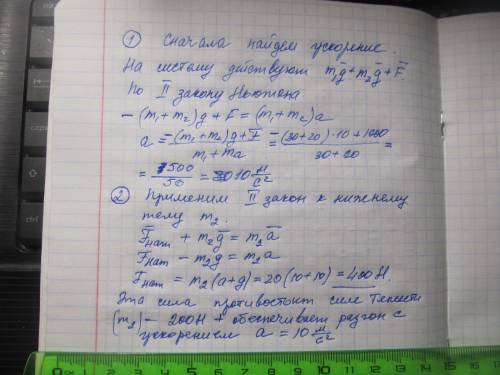 ① Сначала найдем ускорение.
На систему действуют m₁g̅ + m₂g̅ + F̅.
По II закону Ньютона
− (m₁+m₂)g + F = (m₁+m₂)a
a = −(m₁+m₂)g + F / m₁+m₂ = −(30+20)·10 + 1000 / 30+20 =
= 500 / 50 = 10 м/с²
② Применим II закон к нижнему
телу m₂.
F̅нат + m₂g̅ = m₂a̅
Fнат − m₂g = m₂a
Fнат = m₂(a+g) = 20(10+10) = 400 Н.
Эта сила противостоит силе тяжести
(m₂) − 200Н + обеспечивает разгон с
ускорением a = 10 м/с²
0 СМ 1 2 3 4 5 6 7 8 9 10 11 12 13 14